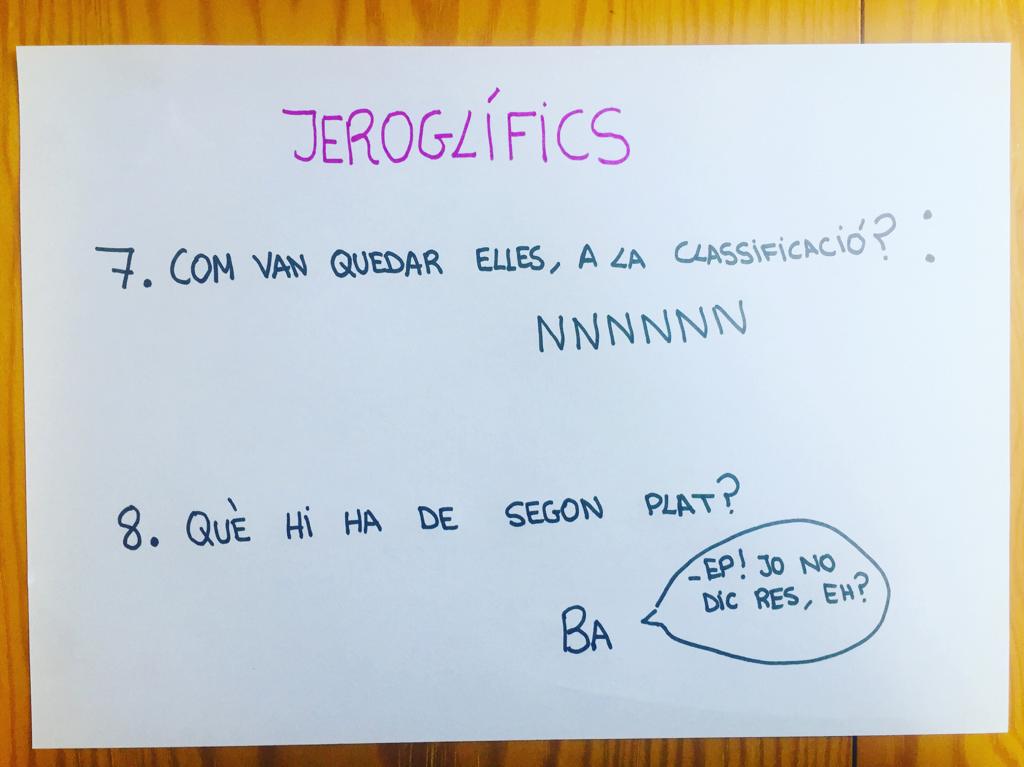 JEROGLÍFICS
7. COM VAN QUEDAR ELLES, A LA CLASSIFICACIÓ? :
NNNNNN
8. QUÈ HI HA DE SEGON PLAT?
-EP! JO NO
DIC RES, EH?
BA